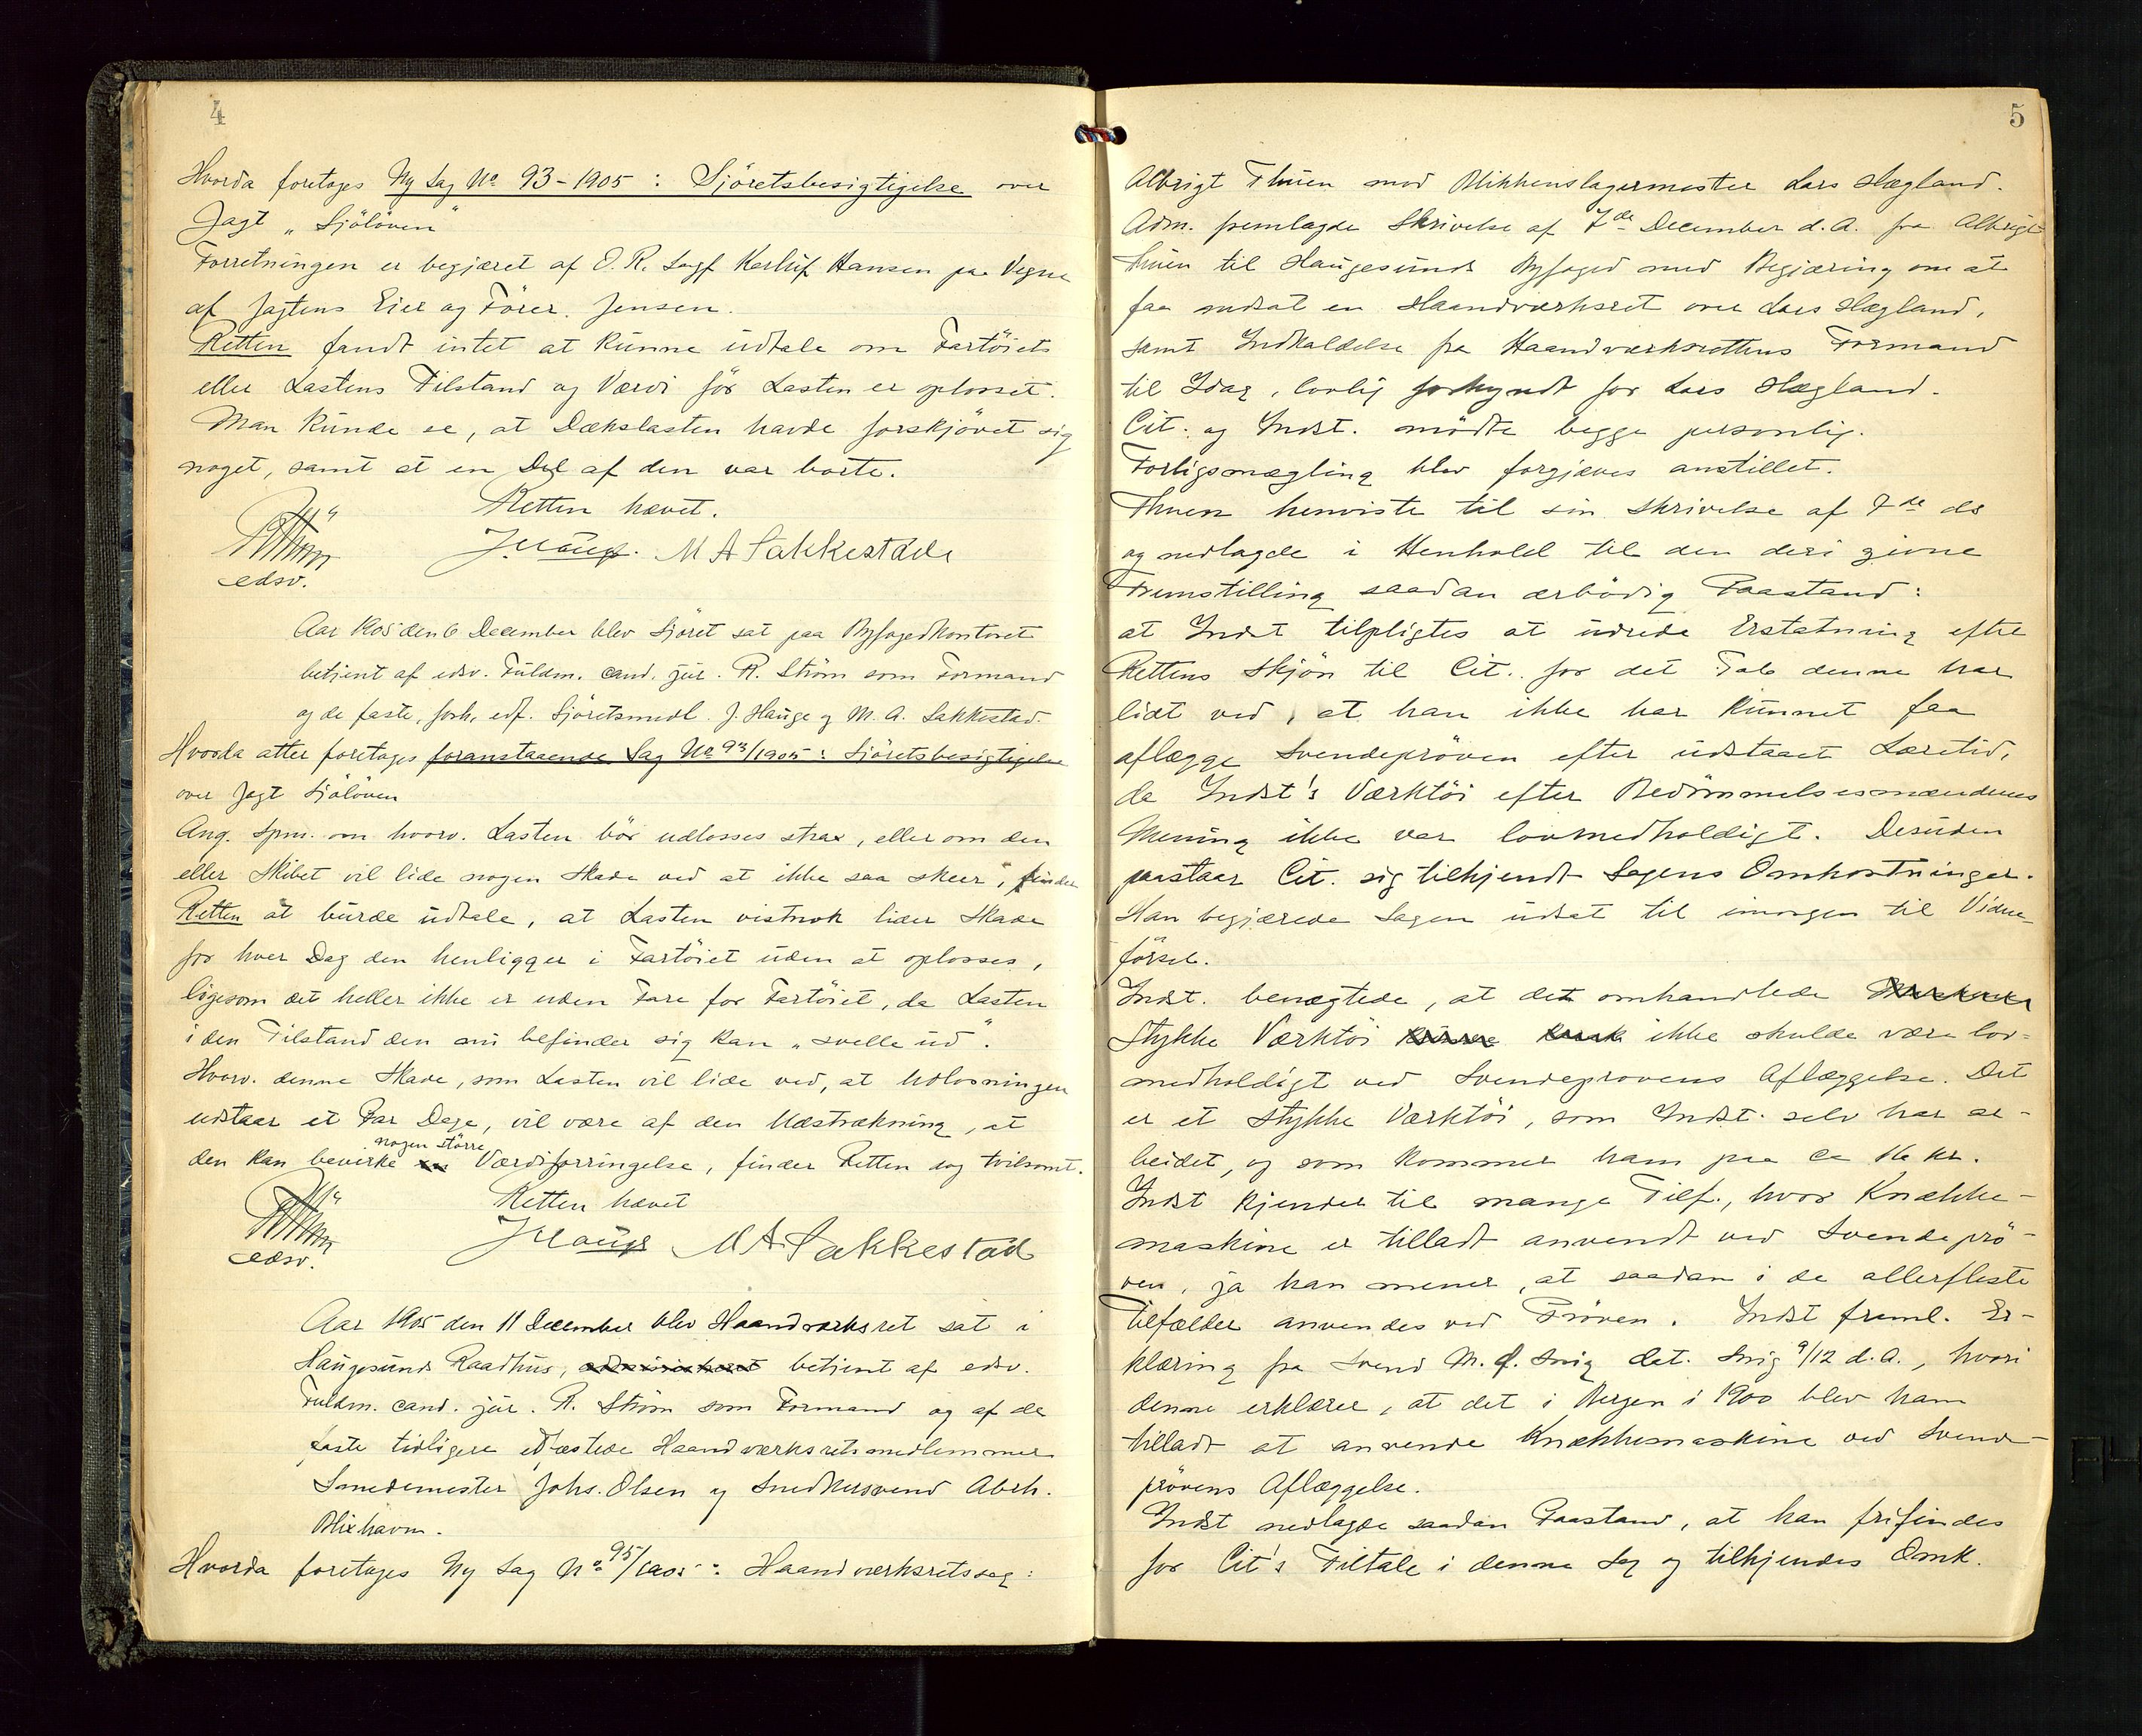 4
Hvorda foretoges Ny Sag No 93-1905: Sjöretsbesigtigelse over
Jagt „Sjölöven“
Forretningen er begjæret af O. R. Sagf. Hansen paa Vegne
af Jagtens Eier og Förer, Jensen.
Retten fandt intet at kunne udtale om Fartöiets
eller Lastens Tilstand og Værdi för Lasten er oplosset.
Man kunde se, at Dækslasten havde forskjövet sig
noget, samt at en Del af den var borte.
Retten hævet.
J. Hauge. M A Sakkestad
edsv.
Aar 1905 den 6 December blev Sjöret sat paa Byfogedkontoret
betjent af edsv. Fuldm. cand. jur. R. Ström som Formand
og de faste, forh. edf. Sjöretsmedl. J. Hauge og M. A. Sakkestad.
Hvorda atter foretoges foranstaaende Sag No 93/1905: Sjöretsbesigtigelse
over Jagt Sjölöven
Ang. Spm. om hvorv. Lasten bör udlosses strax, eller om den
eller Skibet vil lide nogen Skade ved at ikke saa skeer, finder
Retten at burde udtale, at Lasten vistnok lider Skade
for hver Dag den henligger i Fartöiet uden at oplosses,
ligesom det heller ikke er uden Fare for Fartöiet, da Lasten
i den Tilstand den nu befinder sig kan „svelle ud“.
Hvorv. denne Skade, som Lasten vil lide ved, at Udlosningen
udstaar et Par Dage, vil være af den Udstrækning, at
nogen större
den kan bevirke Værdiforringelse, finder Retten dog tvilsomt.
Retten hævet
J Hauge M A Sakkestad
edsv.
Aar 1905 den 11 December blev Haandværksret sat i
Haugesunds Raadhus, betjent af edsv.
Fuldm. cand. jur. R. Ström som Formand og af de
faste tidligere edfæstede Haandværksretsmedlemmer
Smedemester Johs. Olsen og Snedkersvend Abrh.
Blixhavn.
Hvorda foretoges Ny Sag No 95/1905: Haandværksretssag:
5
Albrigt Thuen mod Blikkenslagermester Lars Hægland.
Adm. fremlagde Skrivelse af 7de December d. A. fra Albrigt
Thuen til Haugesunds Byfoged med Begjæring om at
faa nedsat en Haandværksret over Lars Hægland,
samt Indkaldelse fra Haandværksrettens Formand
til Idag, lovlig forkyndt for Lars Hægland.
Cit. og Indst. mödte begge personlig.
Forligsmægling blev forgjæves anstillet.
Thuen henviste til sin Skrivelse af 7de ds
og nedlagde i Henhold til den deri givne
Fremstilling saadan ærbödig Paastand:
at Indst tilpligtes at udrede Erstatning efter
Rettens Skjön til Cit. for det Tab denne har
lidt ved, at han ikke har kunnet faa
aflægge Svendepröven efter udstaaet Læretid,
da Indst's Værktöi efter Bedömmelsesmændenes
Mening ikke var lovmedholdigt. Desuden
paastaar Cit. sig tilkjendt Sagens Omkostninger.
Han begjærede Sagen udsat til imorgen til Vidne-
försel.
Indst. benægtede, at det omhandlede
Stykke Værktöi ikke skulde være lov-
medholdigt ved Svendeprövens Aflæggelse. Det
er et Stykke Værktöi, som Indst. selv har ar-
beidet, og som kommer ham paa ca 16 kr.
Indst kjender til mange Tilf., hvor Knække-
maskine er tilladt anvendt ved Svendeprö-
ven, ja han mener, at saadan i de allerfleste
Tilfælder anvendes ved Pröven. Indst freml. Er-
klæring fra Svend M. dat. 9/12 d. A., hvori
denne erklærer, at det i Bergen i 1900 blev ham
tilladt at anvende Knækkemaskine ved Svende-
prövens Aflæggelse.
Indst nedlagde saadan Paastand, at han frifindes
for Cit's Tiltale i denne Sag og tilkjendes Omk.